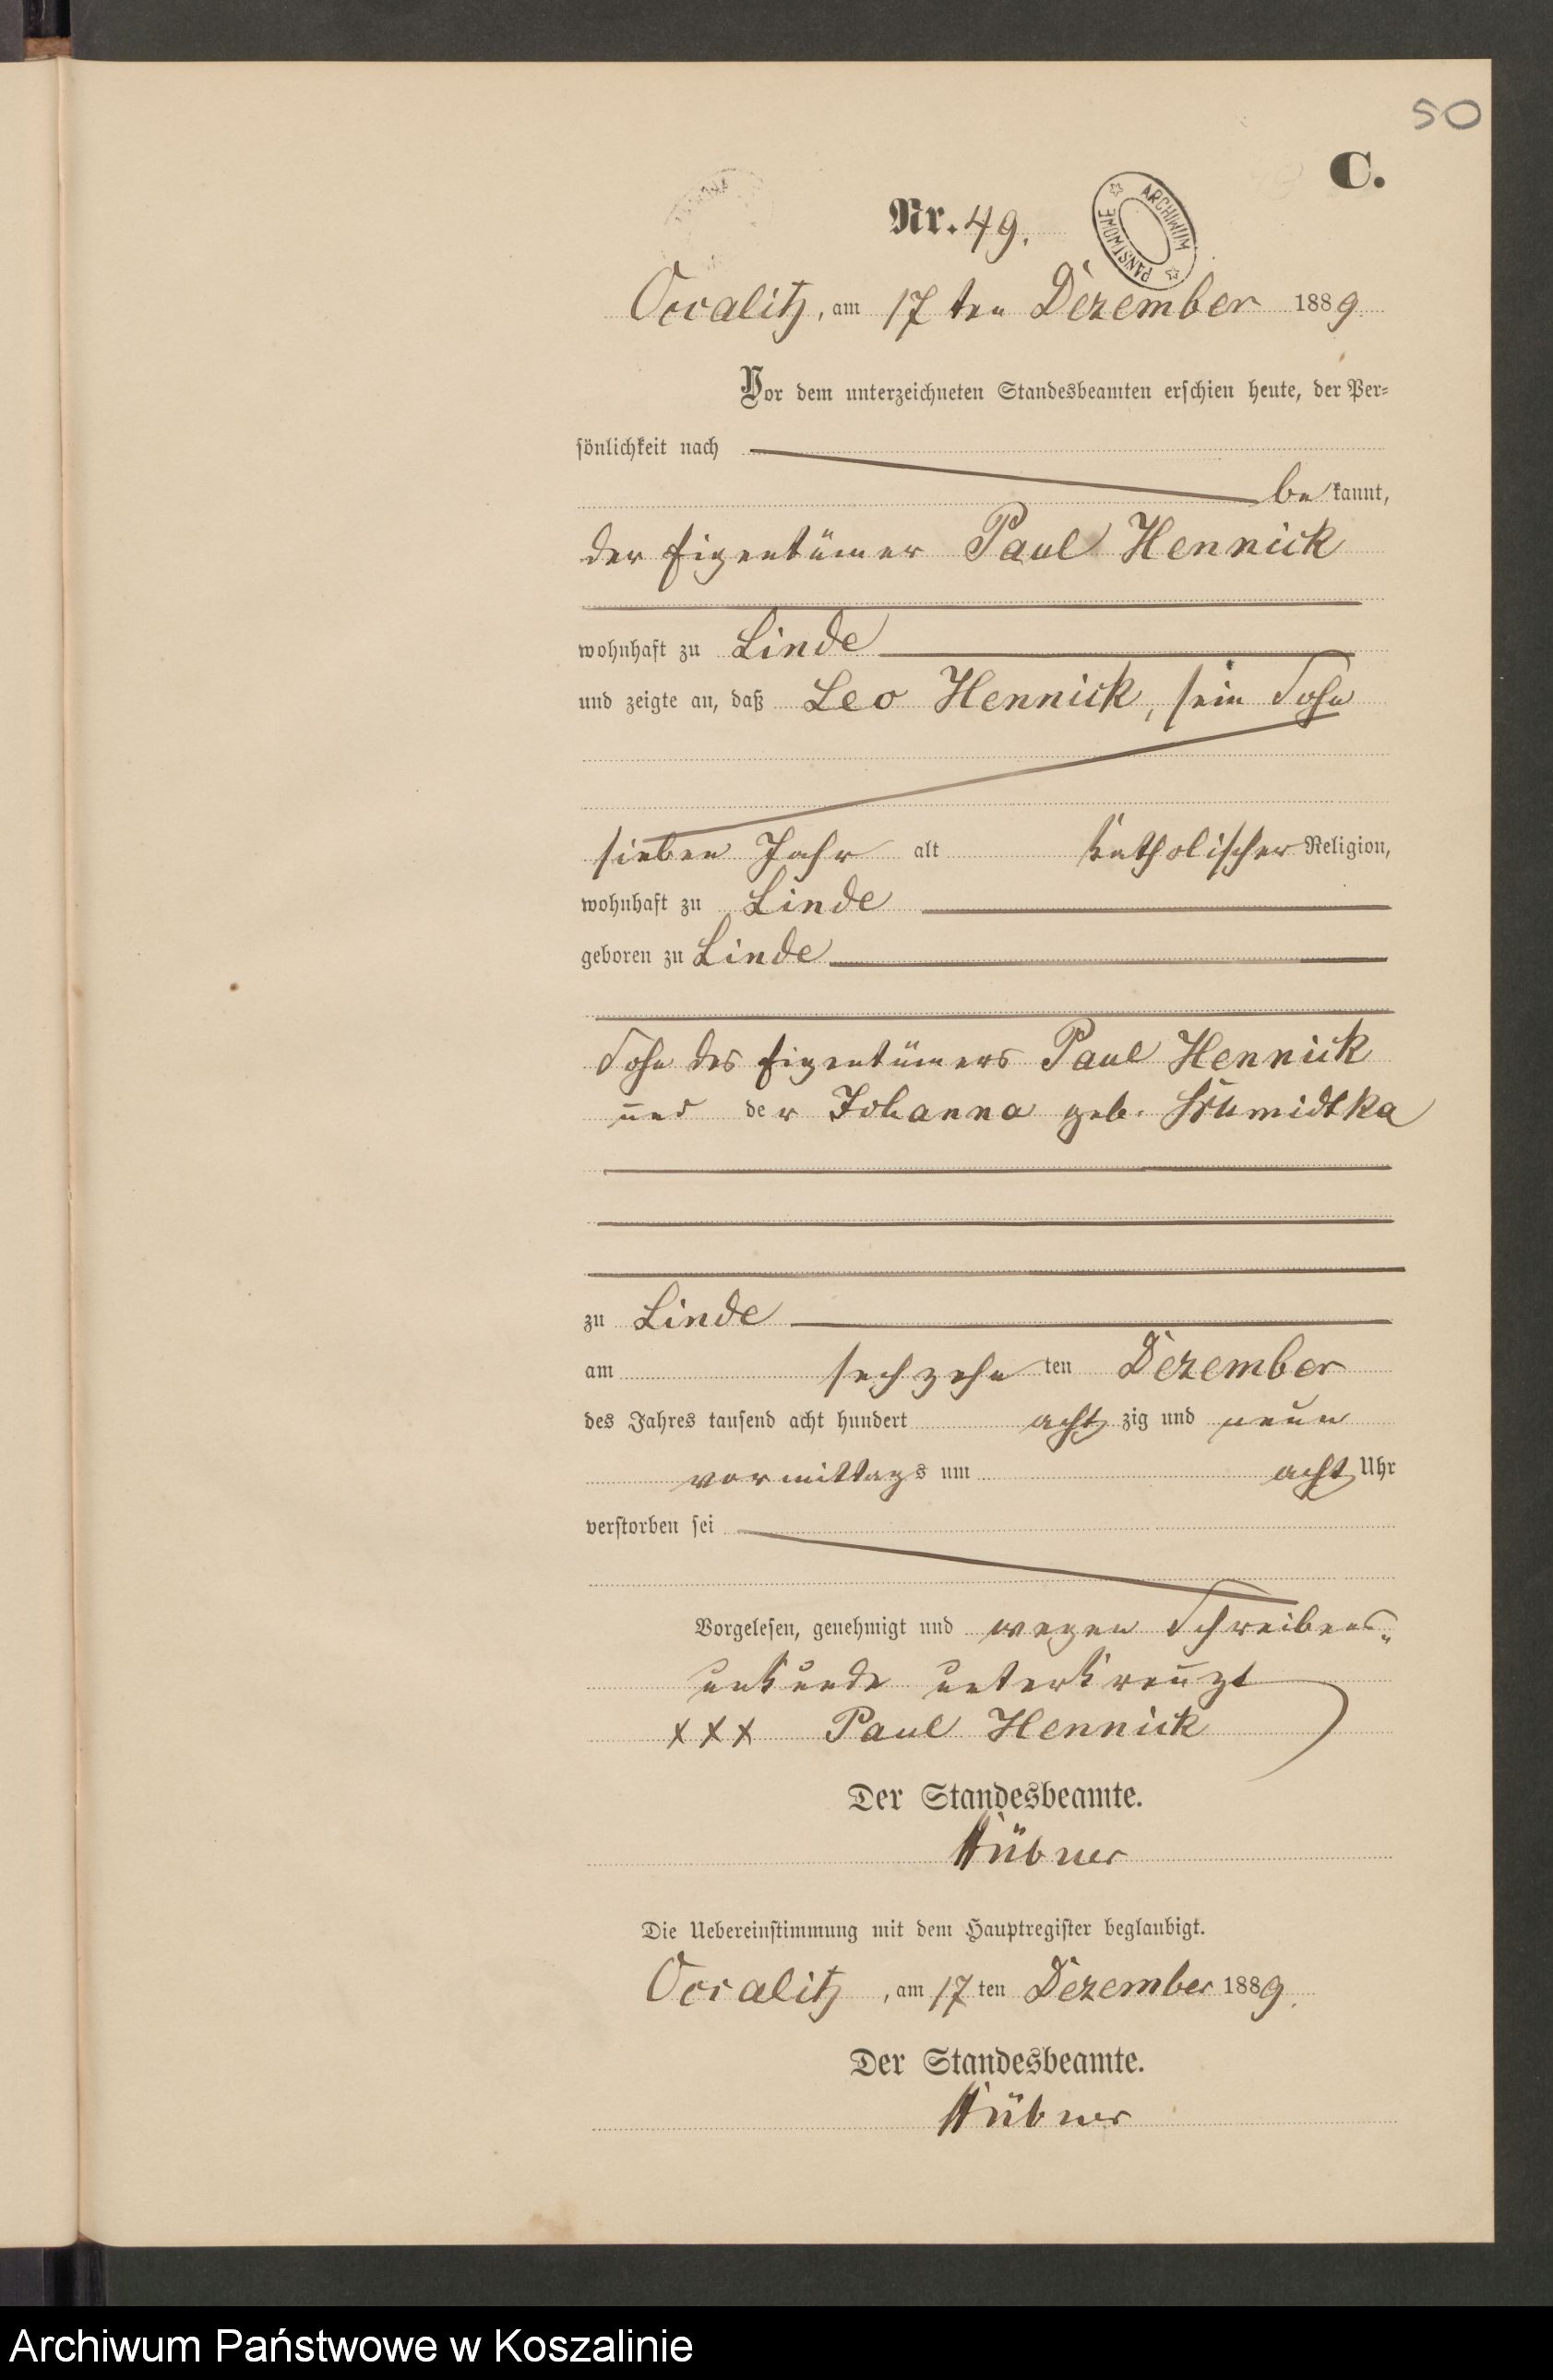 50
C.
Nr. 49.
ARCHIWUM PAŃSTWOWE
Occalitz, am 17 ten Dezember 1889.
Vor dem unterzeichneten Standesbeamten erschien heute, der Per-
sönlichkeit nach
be kannt,
der Eigentümer Paul Hennick
wohnhaft zu Linde
und zeigte an, daß Leo Hennick, sein Sohn
sieben Jahr alt katholischer Religion,
wohnhaft zu Linde
geboren zu Linde
Sohn des Eigentümers Paul Hennick
und der Johanna geb. Schmidtka
zu Linde
am sechzehn ten Dezember
des Jahres tausend acht hundert acht zig und neun
vormittags um acht Uhr
verstorben sei
Vorgelesen, genehmigt und wegen Schreibens-
unkunde unterkreuzt
XXX Paul Hennick
Der Standesbeamte.
Hübner
Die Uebereinstimmung mit dem Hauptregister beglaubigt.
Occalitz, am 17 ten Dezember 1889.
Der Standesbeamte.
Hübner
Archiwum Państwowe w Koszalinie